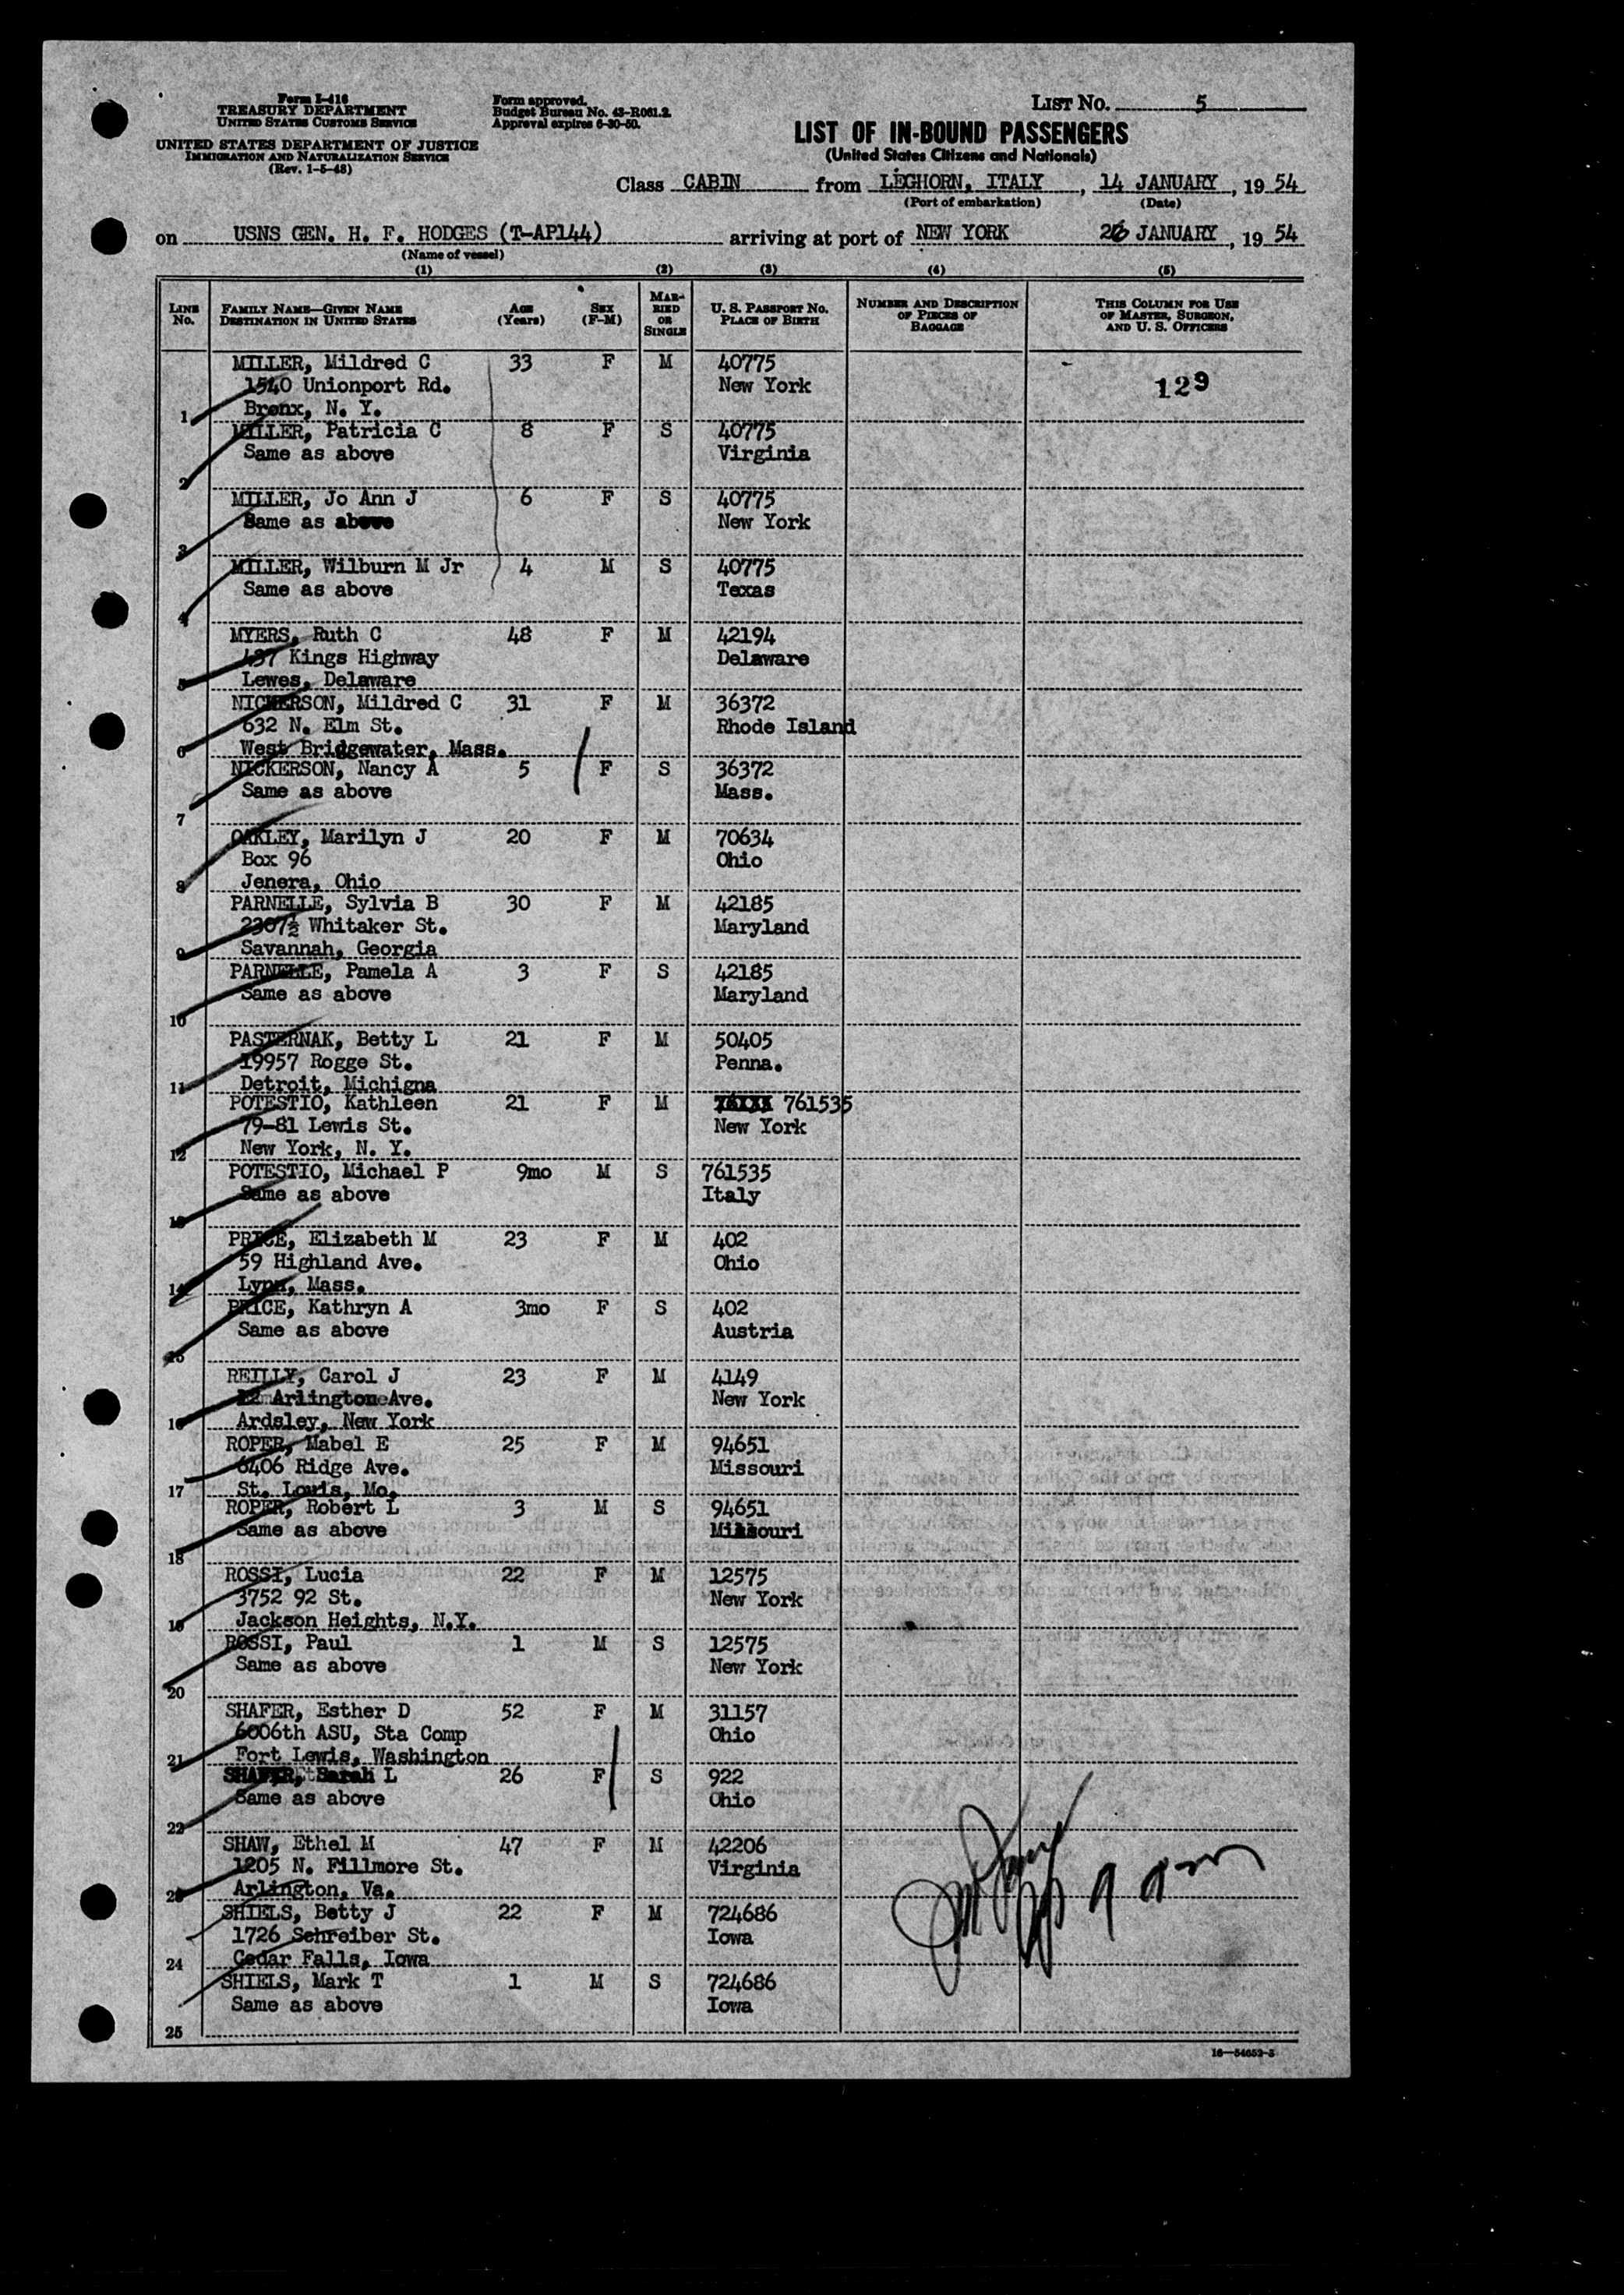 Form I-416
TREASURY DEPARTMENT
UNITED STATES CUSTOMS SERVICE
UNITED STATES DEPARTMENT OF JUSTICE
IMMIGRATION AND NATURALIZATION SERVICE
(Rev. 1-5-48)
Form approved.
Budget Bureau No. 43-R061.2.
Approval expires 6-30-50.
LIST NO. 5
LIST OF IN-BOUND PASSENGERS
(United States Citizens and Nationals)
Class CABIN from LEGHORN, ITALY, 14 JANUARY, 19 54
(Port of embarkation) (Date)
on USNS GEN. H. F. HODGES (T-AP144) arriving at port of NEW YORK 26 JANUARY, 19 54
(Name of vessel)
(1) (2) (3) (4) (5)
LINE No. FAMILY NAME—GIVEN NAME DESTINATION IN UNITED STATES AGE (Years) SEX (F-M) MARRIED OR SINGLE U. S. PASSPORT NO. PLACE OF BIRTH NUMBER AND DESCRIPTION OF PIECES OF BAGGAGE THIS COLUMN FOR USE OF MASTER, SURGEON, AND U. S. OFFICERS
MILLER, Mildred C 33 F M 40775
1540 Unionport Rd. New York 129
1 Bronx, N. Y.
MILLER, Patricia C 8 F S 40775
Same as above Virginia
2
MILLER, Jo Ann J 6 F S 40775
Same as above New York
3
MILLER, Wilburn M Jr 4 M S 40775
Same as above Texas
4
MYERS, Ruth C 48 F M 42194
437 Kings Highway Delaware
5 Lewes, Delaware
NICKERSON, Mildred C 31 F M 36372
632 N. Elm St. Rhode Island
6 West Bridgewater, Mass.
NICKERSON, Nancy A 5 F S 36372
Same as above Mass.
7
OAKLEY, Marilyn J 20 F M 70634
Box 96 Ohio
8 Jenera, Ohio
PARNELLE, Sylvia B 30 F M 42185
2307½ Whitaker St. Maryland
9 Savannah, Georgia
PARNELLE, Pamela A 3 F S 42185
Same as above Maryland
10
PASTERNAK, Betty L 21 F M 50405
19957 Rogge St. Penna.
11 Detroit, Michigna
POTESTIO, Kathleen 21 F M 761535
79-81 Lewis St. New York
12 New York, N. Y.
POTESTIO, Michael P 9mo M S 761535
Same as above Italy
13
PRICE, Elizabeth M 23 F M 402
59 Highland Ave. Ohio
14 Lynn, Mass.
PRICE, Kathryn A 3mo F S 402
Same as above Austria
15
REILLY, Carol J 23 F M 4149
Arlington Ave. New York
16 Ardsley, New York
ROPER, Mabel E 25 F M 94651
6406 Ridge Ave. Missouri
17 St. Louis, Mo.
ROPER, Robert L 3 M S 94651
Same as above Missouri
18
ROSSI, Lucia 22 F M 12575
3752 92 St. New York
19 Jackson Heights, N.Y.
ROSSI, Paul 1 M S 12575
Same as above New York
20
SHAFER, Esther D 52 F M 31157
6006th ASU, Sta Comp Ohio
21 Fort Lewis, Washington
SHAFER, Sarah L 26 F S 922
Same as above Ohio
22
SHAW, Ethel M 47 F M 42206
1205 N. Fillmore St. Virginia
23 Arlington, Va.
SHIELS, Betty J 22 F M 724686
1726 Schreiber St. Iowa
24 Cedar Falls, Iowa
SHIELS, Mark T 1 M S 724686
Same as above Iowa
25
16—54652-3